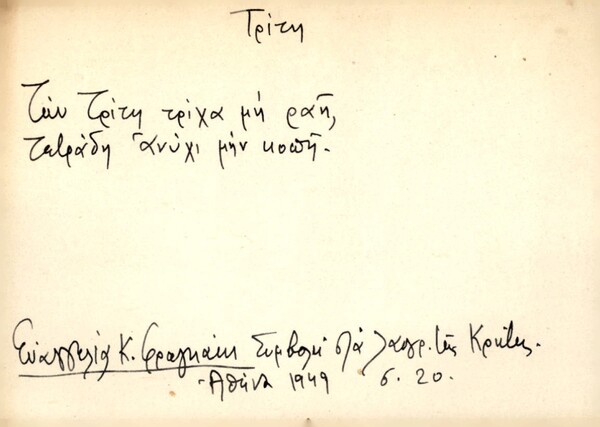 Τρίτη
Τὴν Τρίτη τρίχα μὴ ραῆ,
Τετράδη ἀνύχι μὴν κοπῆ.
Εὐαγγελία Κ. Φραγκάκι Συμβολὴ στὰ λαογρ. τῆς Κρήτης.
Ἀθήνα 1949 σ. 20.